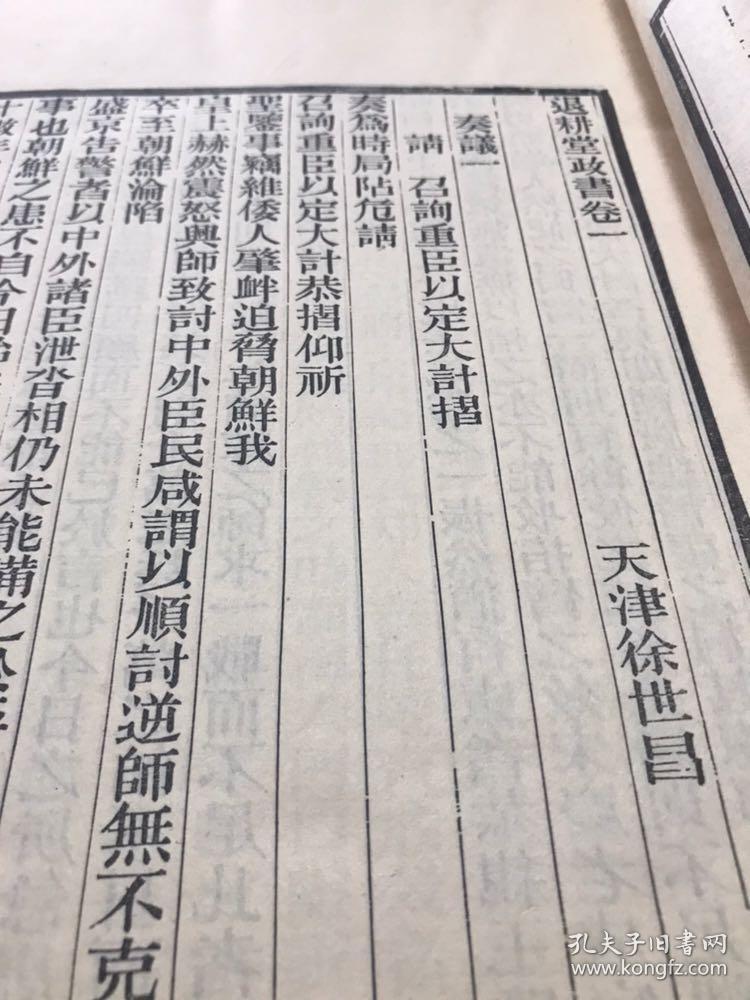 退耕堂政書卷一
天津徐世昌
奏議一
請　召詢重臣以定大計摺
奏爲時局阽危請
召詢重臣以定大計恭摺仰祈
聖鑒事竊維倭人肇衅迫脅朝鮮我
皇上赫然震怒興師致討中外臣民咸謂以順討逆師無不克
卒至朝鮮淪陷
盛京告警者以中外諸臣泄沓相仍未能備之
事也朝鮮之患不自今日始
十數年
孔夫子旧书网
www.kongfz.com